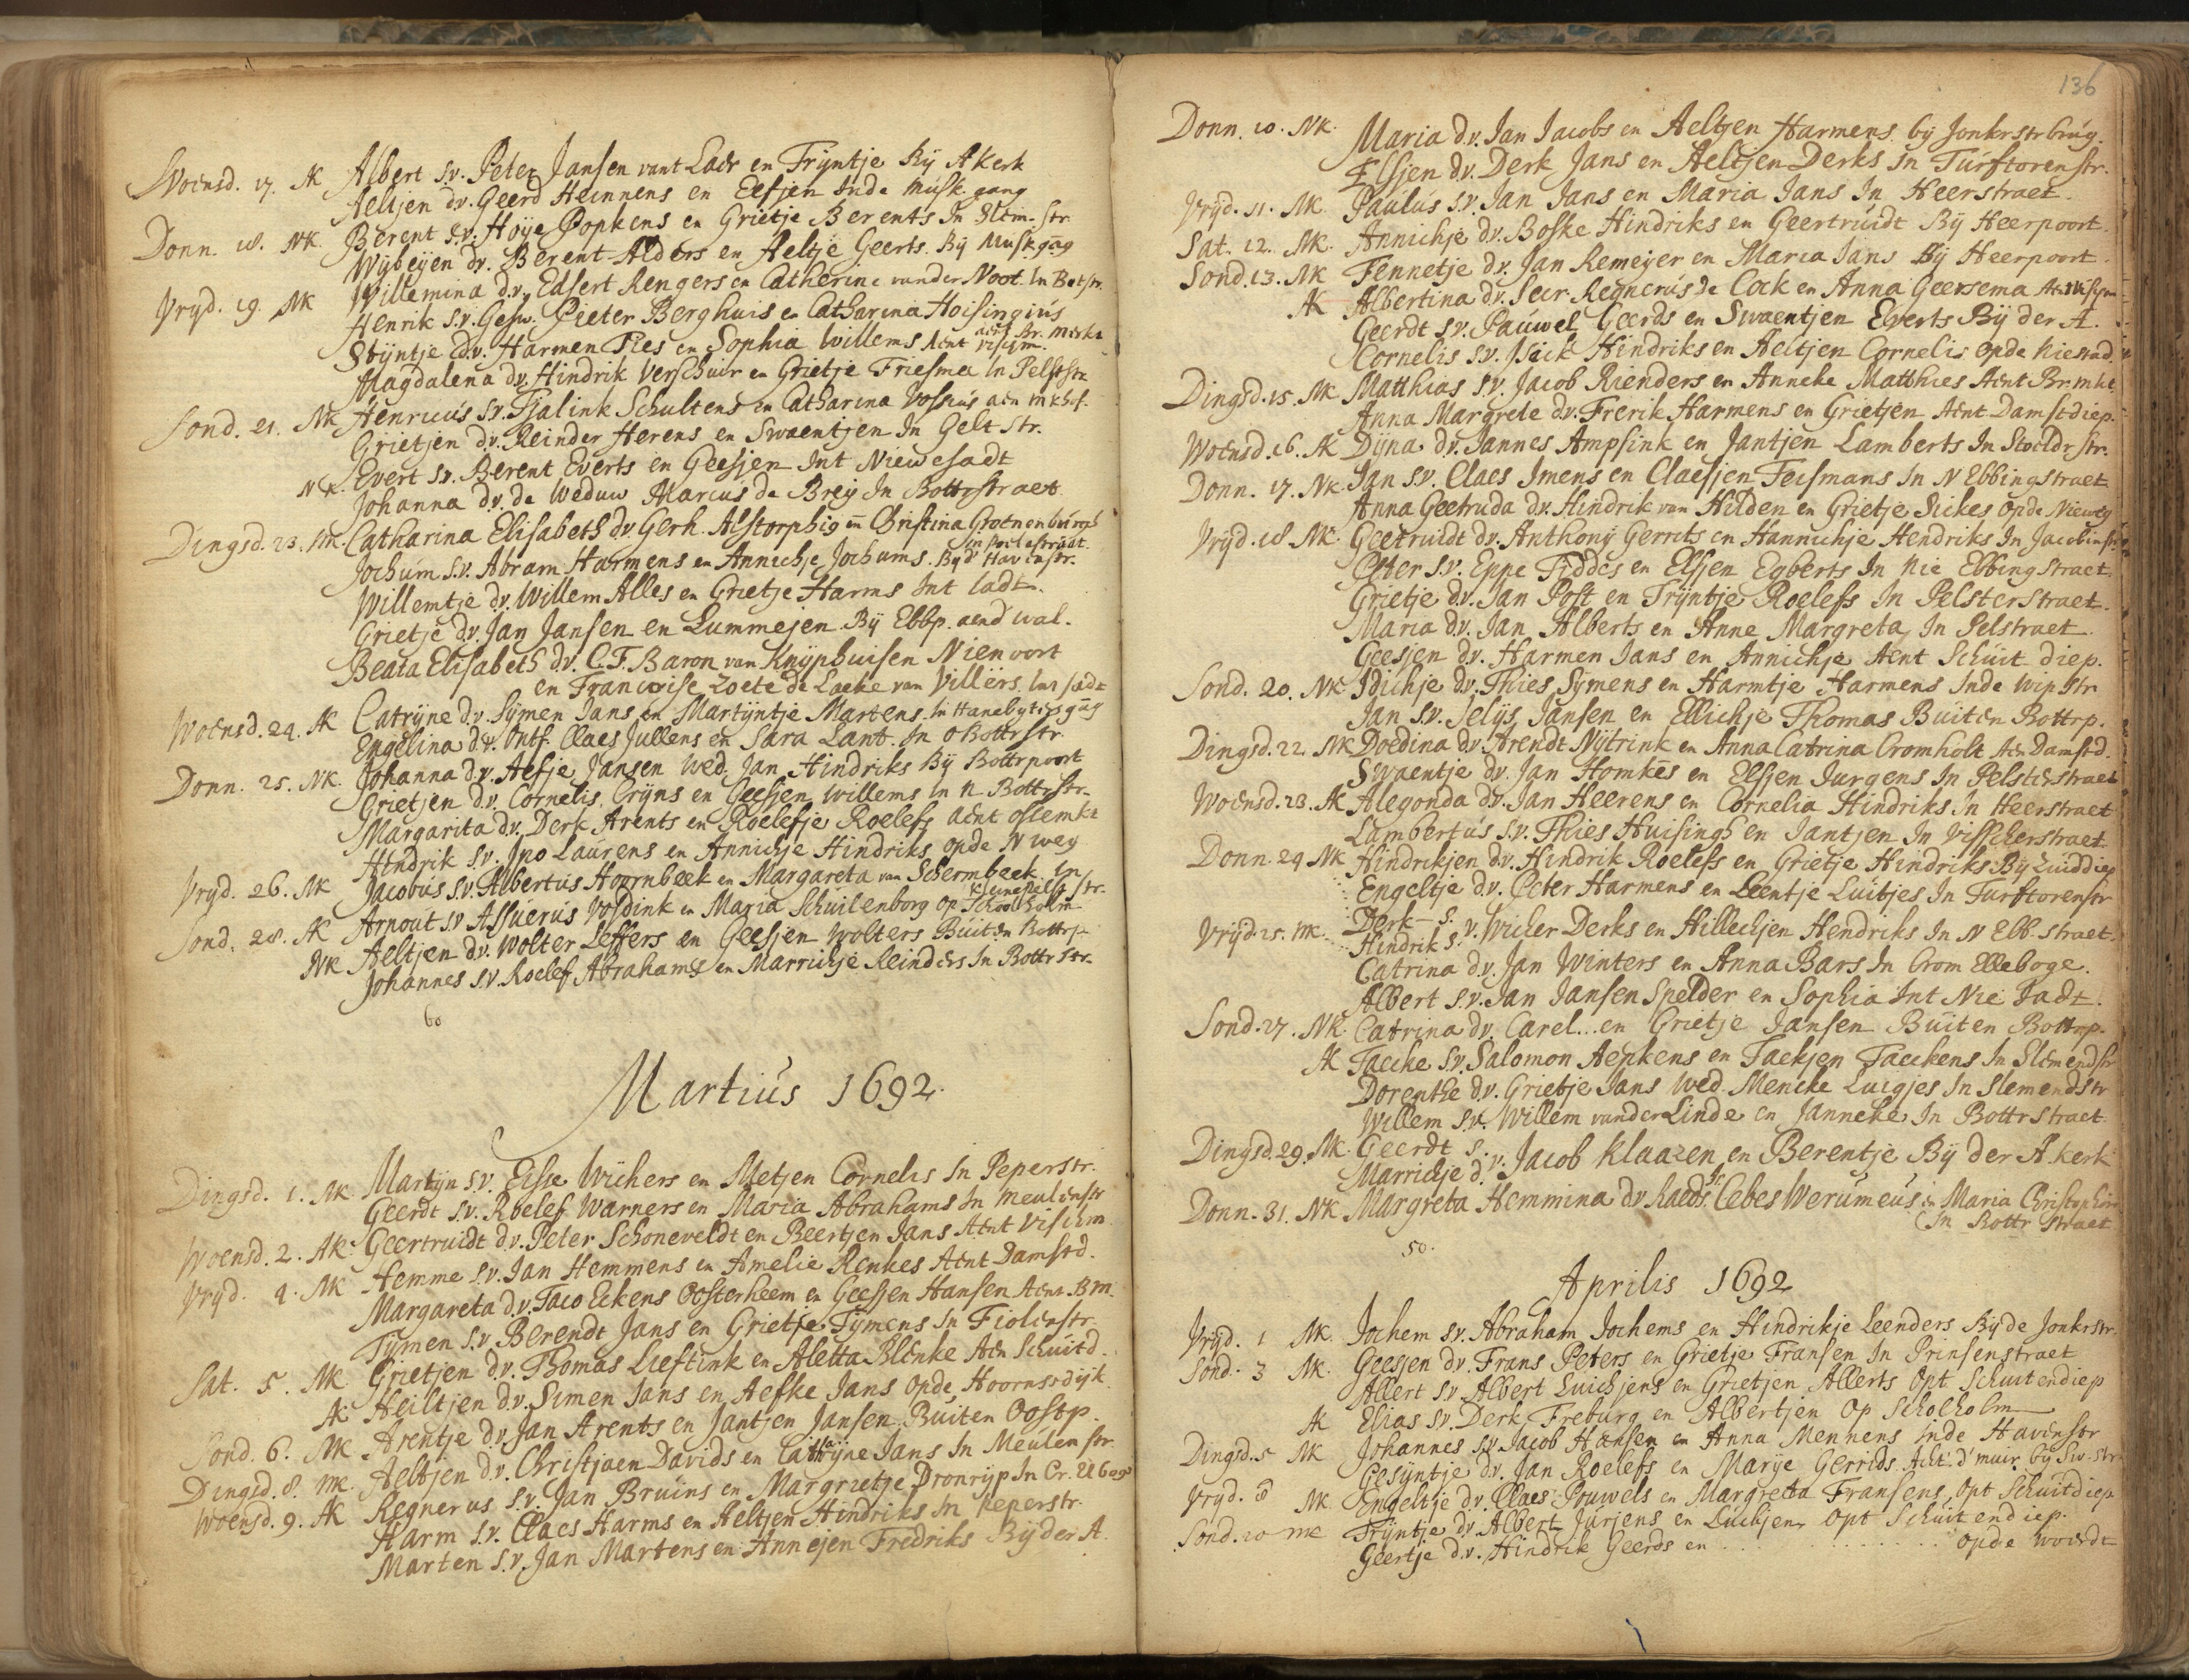 Woensd. 17. AK Albert s.v. Peter Jansen vant Laer en Trijntje Bij Akerk
Aeltjen d.v. Geerd Heinnens en Eefjen Inde Musk.gang
Donn. 18. NK. Berent s.v. Hoije Popkens en Grietje Berents In Slem-str
Wijbeijen dv. Berent Alders en Aeltje Geerts. Bij Muskgag
Vryd. 19. NK Willemina d.v. Edsert Rengers en Catherine vander Noot. In Botstr.
Henrik s.v. Gesw. Pieter Berghuis en Catharina Hoisingius
Stijntje d.v. Harmen Pies en Sophia Willems Aent vischm.
Magdalena dv. Hindrik Verschuir en Grietje Friesma In Pelsterstr
Sond. 21. NK Henricus s.v. Tjalink Schultens en Catharina Vossius aen mkhof.
Grietjen dv. Reinder Herens en Swaentjen In Gelt str.
NK. Evert s.v. Berent Everts en Geesjen Int Niewestadt
Johanna d.v. de Weduw Marcus de Breij In Bottrstraet
Dingsd. 23. NK. Catharina Elisabeth d.v. Gerh. Alstorphig en Christina Groenenburgh
in poelestraat.
Jochum s.v. Abram Harmens en Annichje Jochums. Bij d' Havenstr.
Willemtje d.v. Willem Alles en Grietje Harms Int ladt.
Grietje d.v. Jan Jansen en Lummejen Bij Ebbp. aend wal.
Beata Elisabeth dv. C. F. Baron van Knijphuisen Nienoort
en Francoise Zoete de Laeke van Villers. Int stadt
Woensd. 24. AK Catrijne d.v. Sijmen Jans en Martijntje Martens In Hanebytersgag
Engelina d.v. Ontf. Claes Jullens en Sara Lant. In o Bottrstr
Donn. 25. NK. Johanna d.v. Aefje Jansen Wed. Jan Hindriks Bij Bottrpoort
Grietjen d.v. Cornelis Crijns en Geesjen Willems In N. Bottrstr.
Margarita d.v. Derk Arents en Roelefje Roelefs aent ossemkt
Hindrik s.v. Jpo Laurens en Annichje Hindriks opde N weg
Vryd. 26. NK Jacobus s.v. Albertus Hoornbeek en Margareta van Schermbeek In
kleine pelst str.
Sond. 28. AK Arnout s.v. Assuerus Vosdink en Maria Schuilenborg op Schoolholm
NK Aeltjen dv. Wolter Leffers en Geesjen Wolters Buiten Bottrp
Johannes s.v. Roelef Abrahams en Marrichje Reinders In Bottrstr.
60
Martius 1692.
Dingsd. 1. NK Martijn s.v. Eisse Wichers en Metjen Cornelis In Peperstr.
Geerdt s.v. Roelef Warners en Maria Abrahams In Meulenstr
Woensd. 2. AK. Geertruidt d.v. Peter Schoneveldt en Beertjen Jans Aent Vischm.
Vryd. 4. NK Hemme s.v. Jan Hemmens en Amelie Renkes Aent Damstd.
Margareta d.v. Taco Eckens Oosterheem en Geesjen Hansen Aent Bm.
Tijmen s.v. Berendt Jans en Grietje Tijmens In Fiolenstr.
Sat. 5. NK Grietjen d.v. Thomas Lieftink en Aletta Blenke Aen Schuitd.
AK Heiltjen d.v. Simen Jans en Aefke Jans opde Hoornsdijk.
Sond. 6. NK Arentje d.v. Jan Arents en Jantjen Jansen Buiten Oostp.
Dingsd. 8. NK. Aeltjen d.v. Christjaen Davids en Cathrijne Jans In Meulenstr.
Woensd. 9. AK Regnerus s.v. Jan Bruins en Margrietje Dronrijp In Cr. Elboge
Harm s.v. Claes Harms en Aeltjen Hindriks In peperstr.
Marten s.v. Jan Martens en Annejen Fredriks Bij der A.
136
Donn. 10. NK. Maria d.v. Jan Jacobs en Aeltjen Harmens bij Jonkrstrbrug.
Elsjen d.v. Derk Jans en Aeltjen Derks In Turftorenstr.
Vrijd. 11. NK. Paulus s.v. Jan Jans en Maria Jans In Heerstraet
Sat. 12. NK. Annichje d.v. Boske Hindriks en Geertruidt Bij Heerpoort.
Sond. 13. NK Fennetje d.v. Jan Remeijer en Maria Jans Bij Heerpoort.
AK Albertina dv. Secr. Regnerus de Cock en Anna Geersema
Geerdt s.v. Pauwel Geerds en Swaentjen Everts Bij der A.
Cornelis s.v. Isaick Hindriks en Aeltjen Cornelis opde Niestad
Dingsd. 15. NK Matthias s.v. Jacob Rienders en Anneke Matthies Aent Br.mkt
Anna Margrete d.v. Frerik Harmens en Grietjen Aent Damstdiep.
Woensd. 16. AK Dijna d.v. Jannes Ampsink en Jantjen Lamberts In Stoeldrstr.
Donn. 17. NK. Jan s.v. Claes Imens en Claesjen Feismans In N Ebbingstraet
Anna Geetruda d.v. Hindrik van Hilden en Grietje Sickes opde Nieweg
Vrijd. 18 NK. Geetruidt d.v. Anthonij Gerrits en Hannichje Hendriks In Jacobinstr
Peter s.v. Eppe Fiddes en Elsjen Egberts In Nie Ebbingstraet
Grietje d.v. Jan Post en Trijntje Roelefs In Pelsterstraet.
Maria d.v. Jan Alberts en Anne Margreta In Pelstraet.
Geesjen d.v. Harmen Jans en Annichje Aent Schuit diep.
Sond. 20. NK Idichje d.v. Thies Sijmens en Harmtje Harmens Inde Wipstr
Jan s.v. Jelijs Jansen en Ellichje Thomas Buiten Bottrp.
Dingsd. 22. NK Doedina d.v. Arendt Nijtrink en Anna Catrina Cromholt Aen Damstd.
Swaentje dv. Jan Homkes en Elsjen Jurgens In Pelsterstraet
Woensd. 23. AK Alegonda d.v. Jan Heerens en Cornelia Hindriks In Heerstraet
Lambertus s.v. Thies Huisingh en Jantjen In Visscherstraet
Donn. 24 NK Hindrikjen d.v. Hindrik Roelefs en Grietje Hindriks Bij Zuiddiep
Engeltje dv. Peter Harmens en Leentje Luitjes In Turftorenstr
Vrijd. 25. NK. Derk s.
Hindrik s. v. Wicher Derks en Hillechjen Hendriks In N Ebb. straet.
Catrina d.v. Jan Winters en Anna Bars In Crom Elleboge.
Albert s.v. Jan Jansen Spelder en Sophia Int Nie Stadt.
Sond. 27. NK. Catrina dv. Carel... en Grietje Jansen Buiten Bottrp.
AK Taecke s.v. Salomon Aepkens en Taekjen Taeckens In Slemendstr
Dorenthe d.v. Grietje Jans Wed. Mencke Luigjes In Slemendstr
Willem s.v. Willem vander Linde en Janneke In Bottrstraet.
Dingsd. 29. NK. Geerdt s.
Marrichje d. v. Jacob Klaazen en Berentje Bij der A. kerk
Donn. 31. NK Margreta Hemmina dv. Raedshr Cebes Werumeus en Maria Christophori
(In Bottr straet
50.
Aprilis 1692
Vrijd. 1 NK. Jochem s.v. Abraham Jochems en Hindrikje Leenders Bij de Jonkrstr
Sond. 3 NK. Geesjen dv. Frans Peters en Grietje Fransen In Prinsenstraet
Allert s.v. Albert Luichjens en Grietjen Allerts Opt Schuitendiep
AK Elias s.v. Derk Freburg en Albertjen Op Scholholm
Dingsd. 5 NK Johannes s.v. Jacob Hansen en Anna Mennens Inde Havenstr
Gesijntje dv. Jan Roelefs en Marije Gerrids. Acht. d' muir. bij Sw.str
Vryd. 8 NK Engeltje dv. Claes Pouwels en Margreta Fransens Opt Schuitdiep
Sond. 10 NK Trijntje dv. Albert Jurjens en Luichjen Opt Schuitendiep.
Geertje d.v. Hindrik Geerds en . . . . . . . . . . opde Woerdt